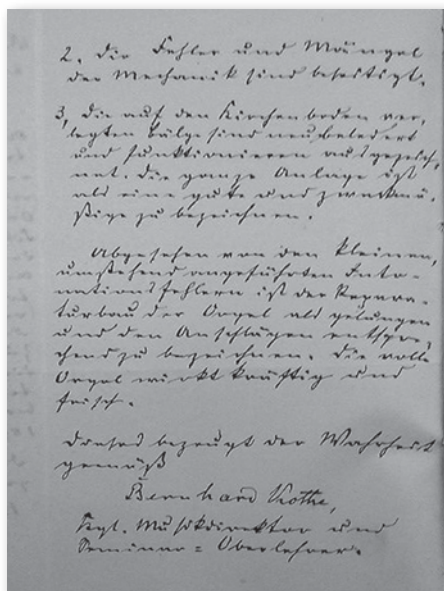 2. Die Fehler und Mängel
der Mechanik sind beseitigt.
3, Die auf den Kirchenboden ver,
legten Bälge sind neu beledert
und funktionieren ausgezeich,
net. Die ganze Anlage ist
als eine gute und zweckmä,
ßige zu bezeichnen.
Abgesehen von den kleinen,
umstehend angeführten Into-
nationsfehlern ist der Repara-
turbau der Orgel als gelungen
und den Anschlägen entspre,
chend zu bezeichnen. Die volle
Orgel wirkt kräftig und
frisch.
Dieses bezeugt der Wahrheit
gemäß
Bernhard Kothe,
Kgl. Musikdirektor und
Seminar=Oberlehrer.